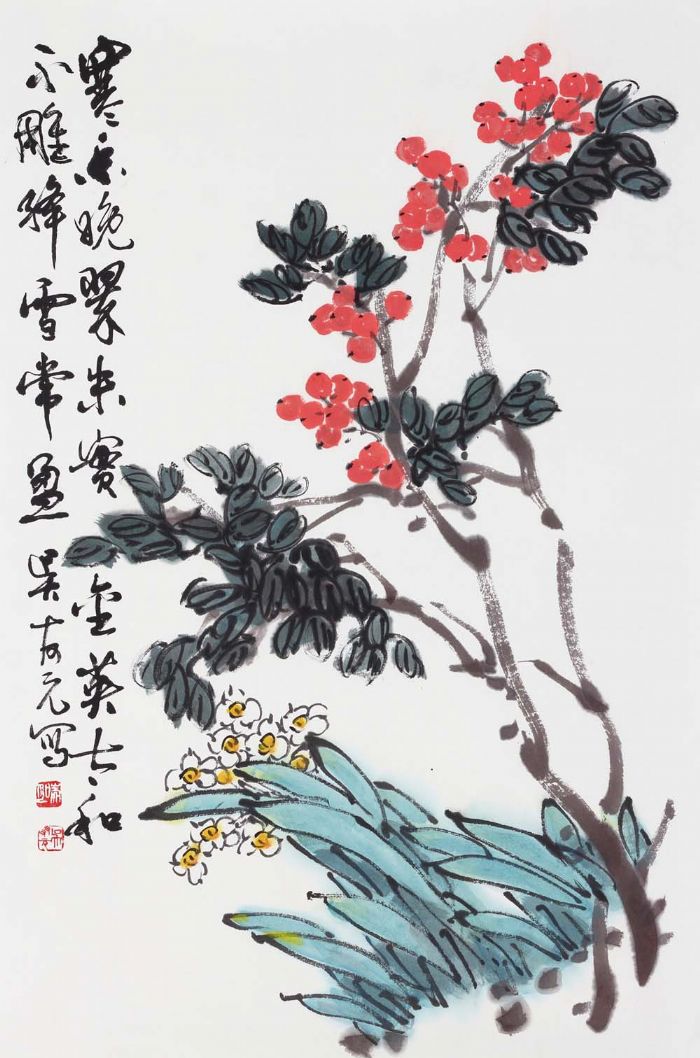 寒晚翠朱實金英太和
不雕絳雪常盈 吳元寫